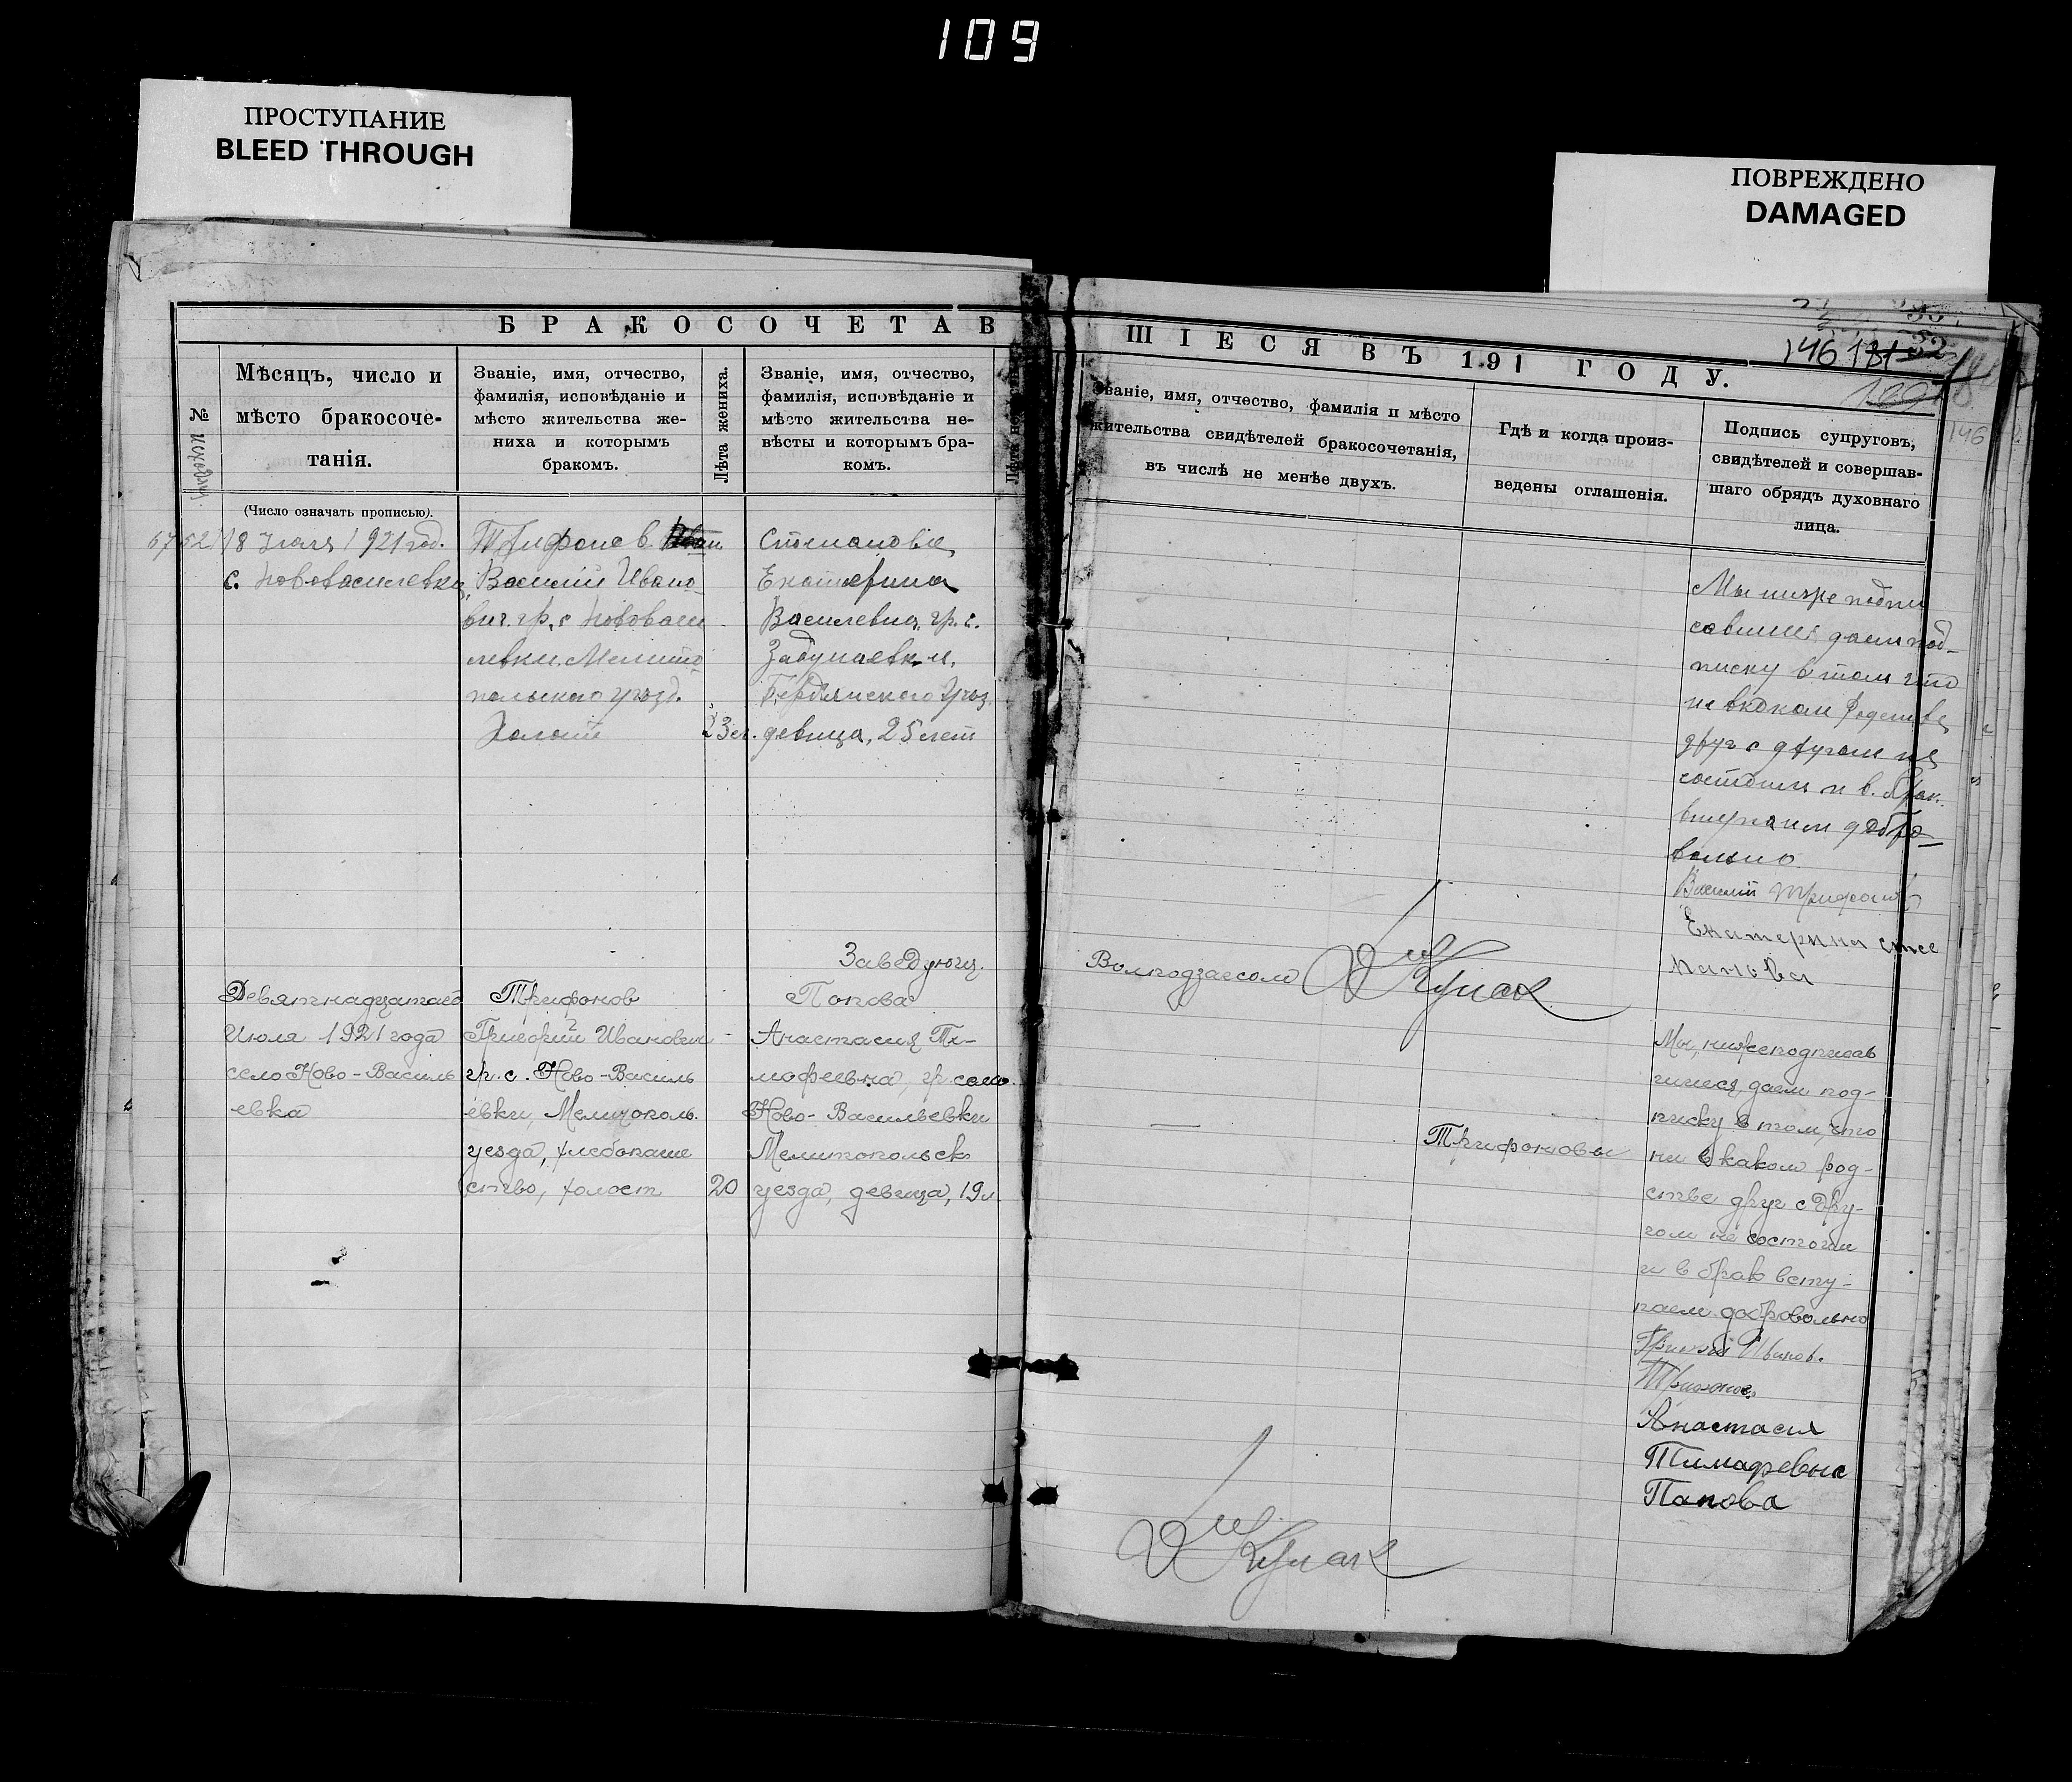 109
ПРОСТУПАНИЕ
BLEED THROUGH
ПОВРЕЖДЕНО
DAMAGED
БРАКОСОЧЕТАВ
ШІЕСЯ ВЪ 191 ГОДУ.
146 131 32
146
№
Мѣсяцъ, число и
мѣсто бракосоче-
танія.
(Число означать прописью).
Званіе, имя, отчество,
фамилія, исповѣданіе и
мѣсто жительства же-
ниха и которымъ
бракомъ.
Лѣта жениха.
Званіе, имя, отчество,
фамилія, исповѣданіе и
мѣсто жительства не-
вѣсты и которымъ бра-
комъ.
Званіе, имя, отчество, фамилія и мѣсто
жительства свидѣтелей бракосочетанія,
въ числѣ не менѣе двухъ.
Гдѣ и когда произ-
ведены оглашенія.
Подпись супруговъ,
свидѣтелей и совершав-
шаго обрядъ духовнаго
лица.
18 Июля 1921 год.
с. Нововасилевка
Трифонов
Василий Ивано-
вич. гр. с Нововаси
левки. Мелито-
польского уезд.
Холост
23 л.
Степанова
Екатерина
Василевна, гр. с.
Задунаевки,
Бердянского Уез.
девица, 25 лет
Мы ниже подпи
савшиеся даем под-
писку в том что
не в каком родстве
друг с другом не
состоим и в брак
вступаем добро-
вольно
Василий Трифонов
Екатерина сте
панова
Заведующ.
Волподзагсом
Девятнадцатого
Июля 1921 года
село Ново-Василь
евка
Трифонов
Григорий Иванович
гр. с. Ново-Василь
евки, Мелитополь.
уезда, хлебопаше
ство, холост
20
Попова
Анастасия Ти-
мофеевна, гр. село
Ново-Васильевки
Мелитопольск
уезда, девица, 19 л
—
Трифоновы
Мы, нижеподписав
шиеся, даем под-
писку в том, что
ни в каком род-
стве друг с дру-
гом не состоим
и в брак всту-
паем добровольно
Григорий Иванов.
Трифонов
Анастасия
Тимафевна
Папова